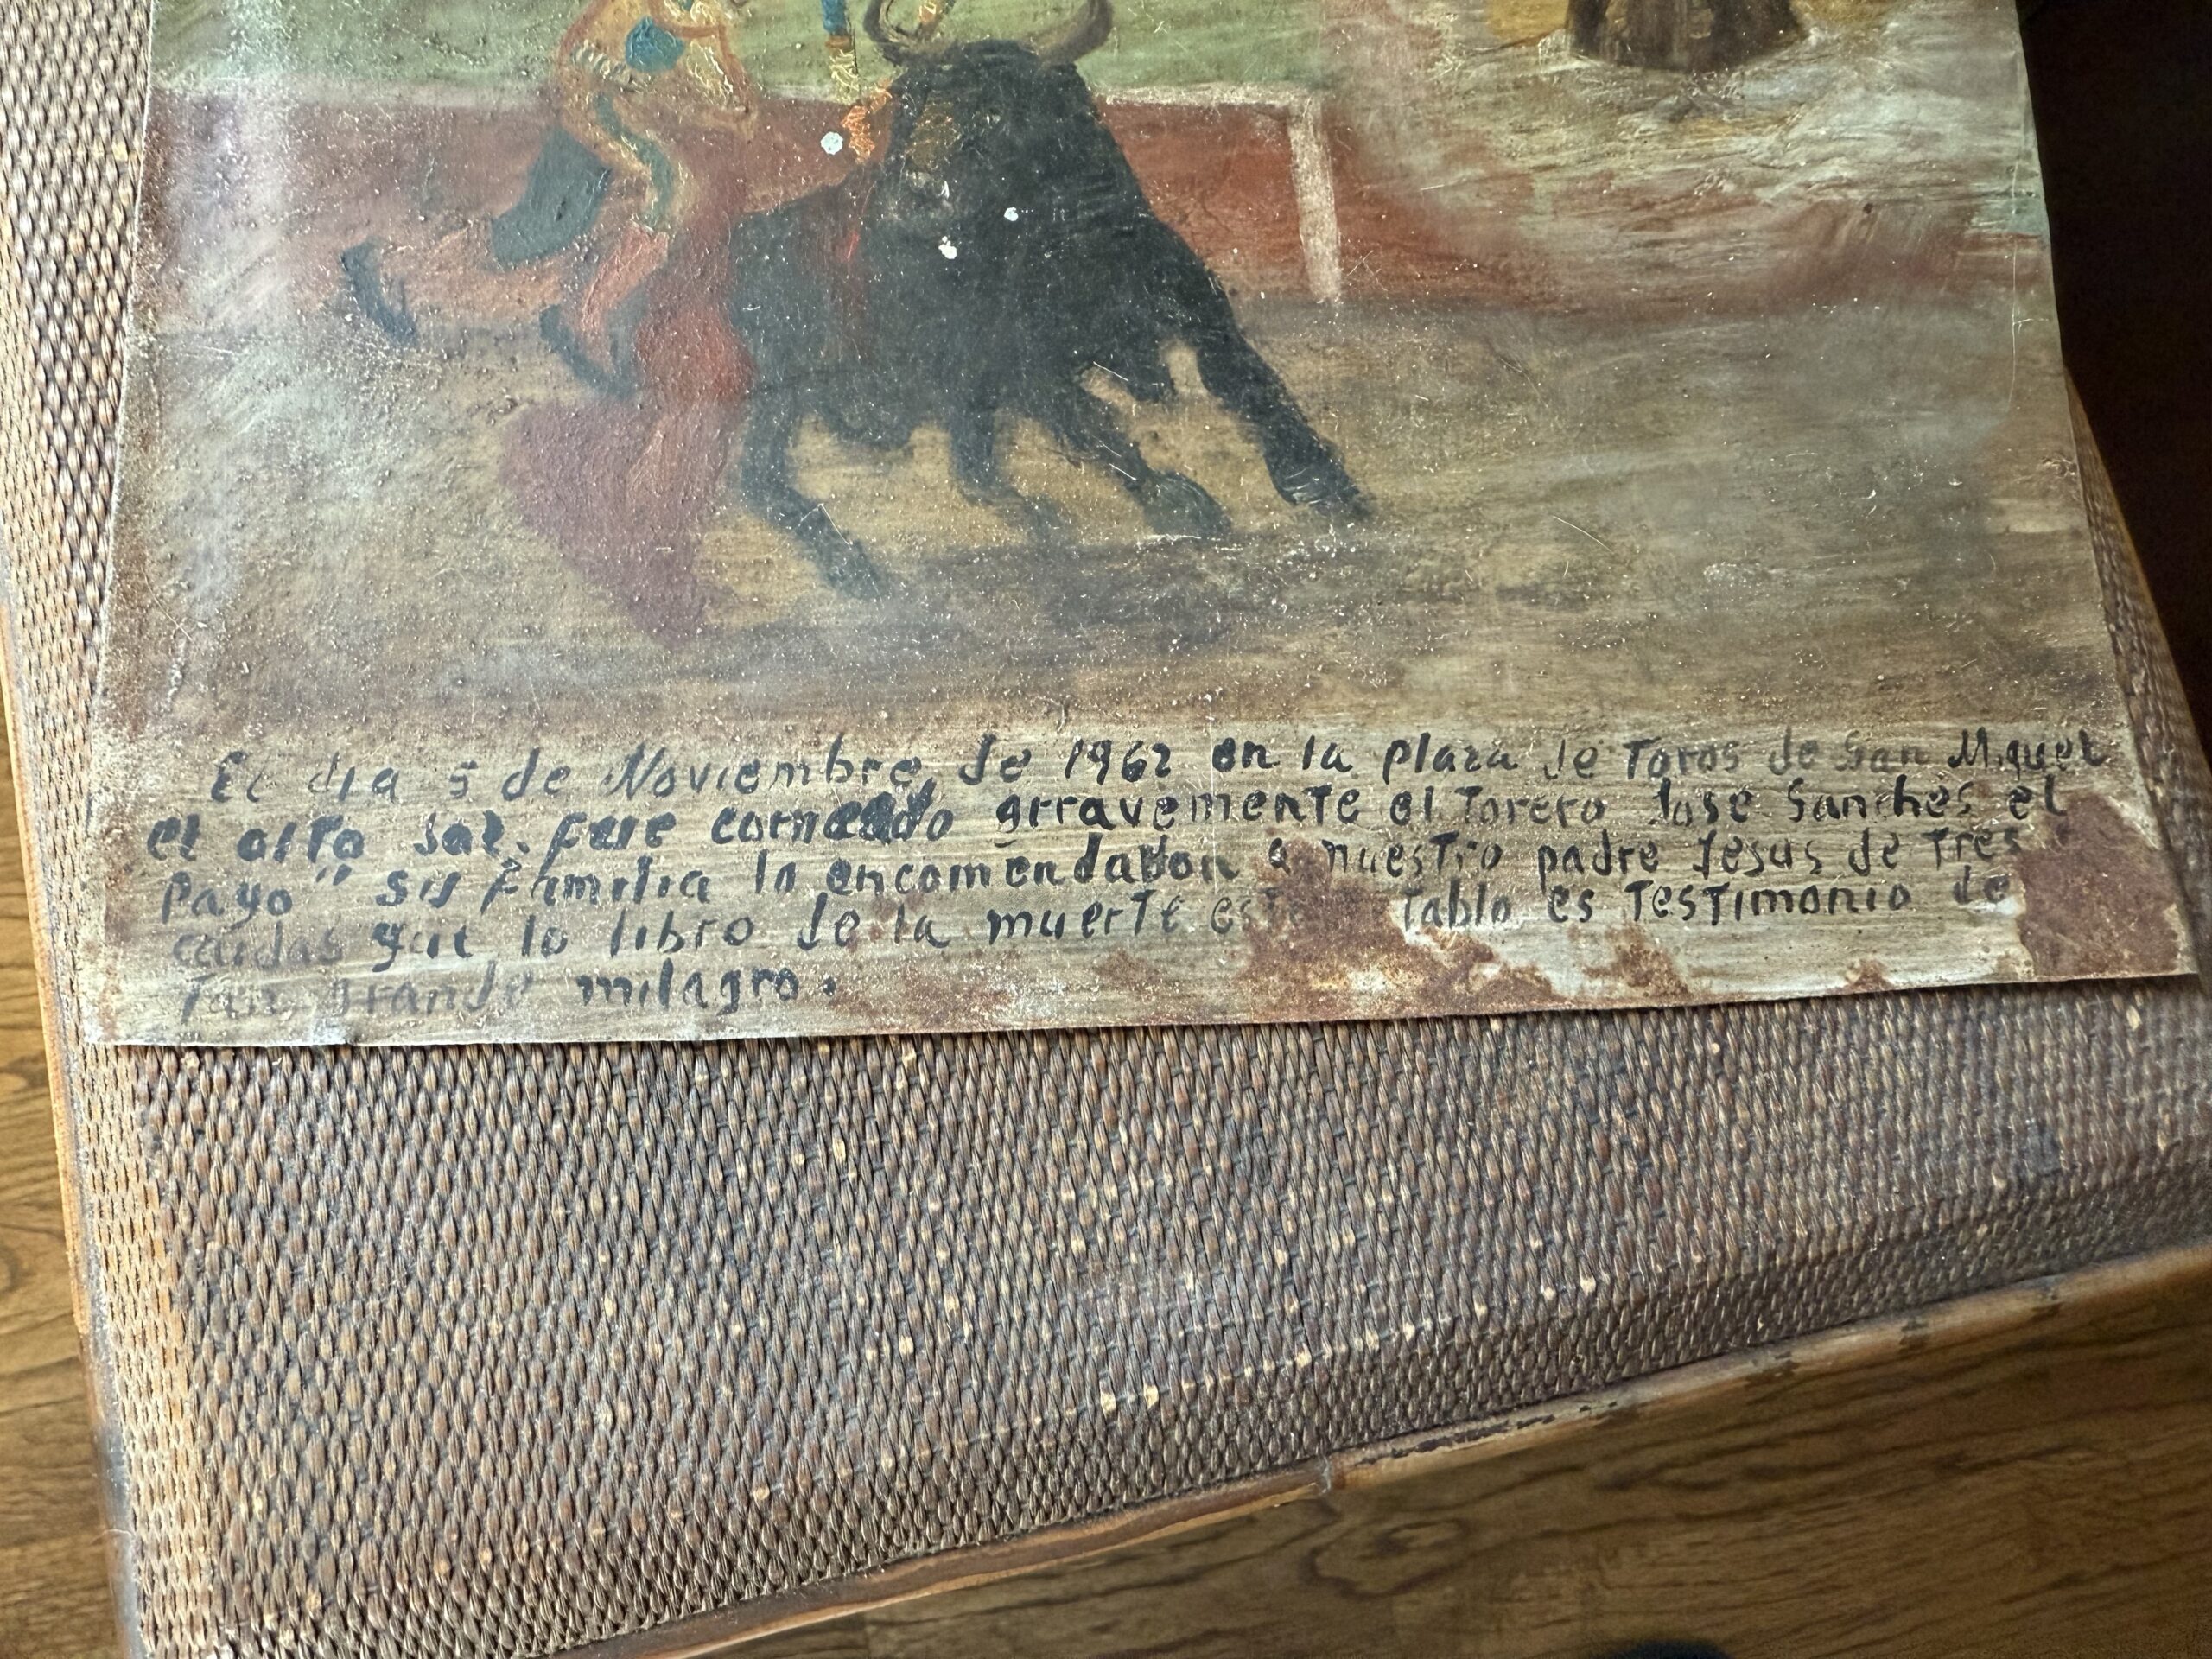 El dia 5 de Noviembre de 1962 en la plaza de Toros de San Miguel
el alto Jal. fue corneado grravemente el Torero Jose Sanches el
"Payo" su familia lo encomendaron a nuestro padre Jesus de Tres
caidas que lo libro de la muerte este Tablo es Testimonio de
Tan grande milagro.